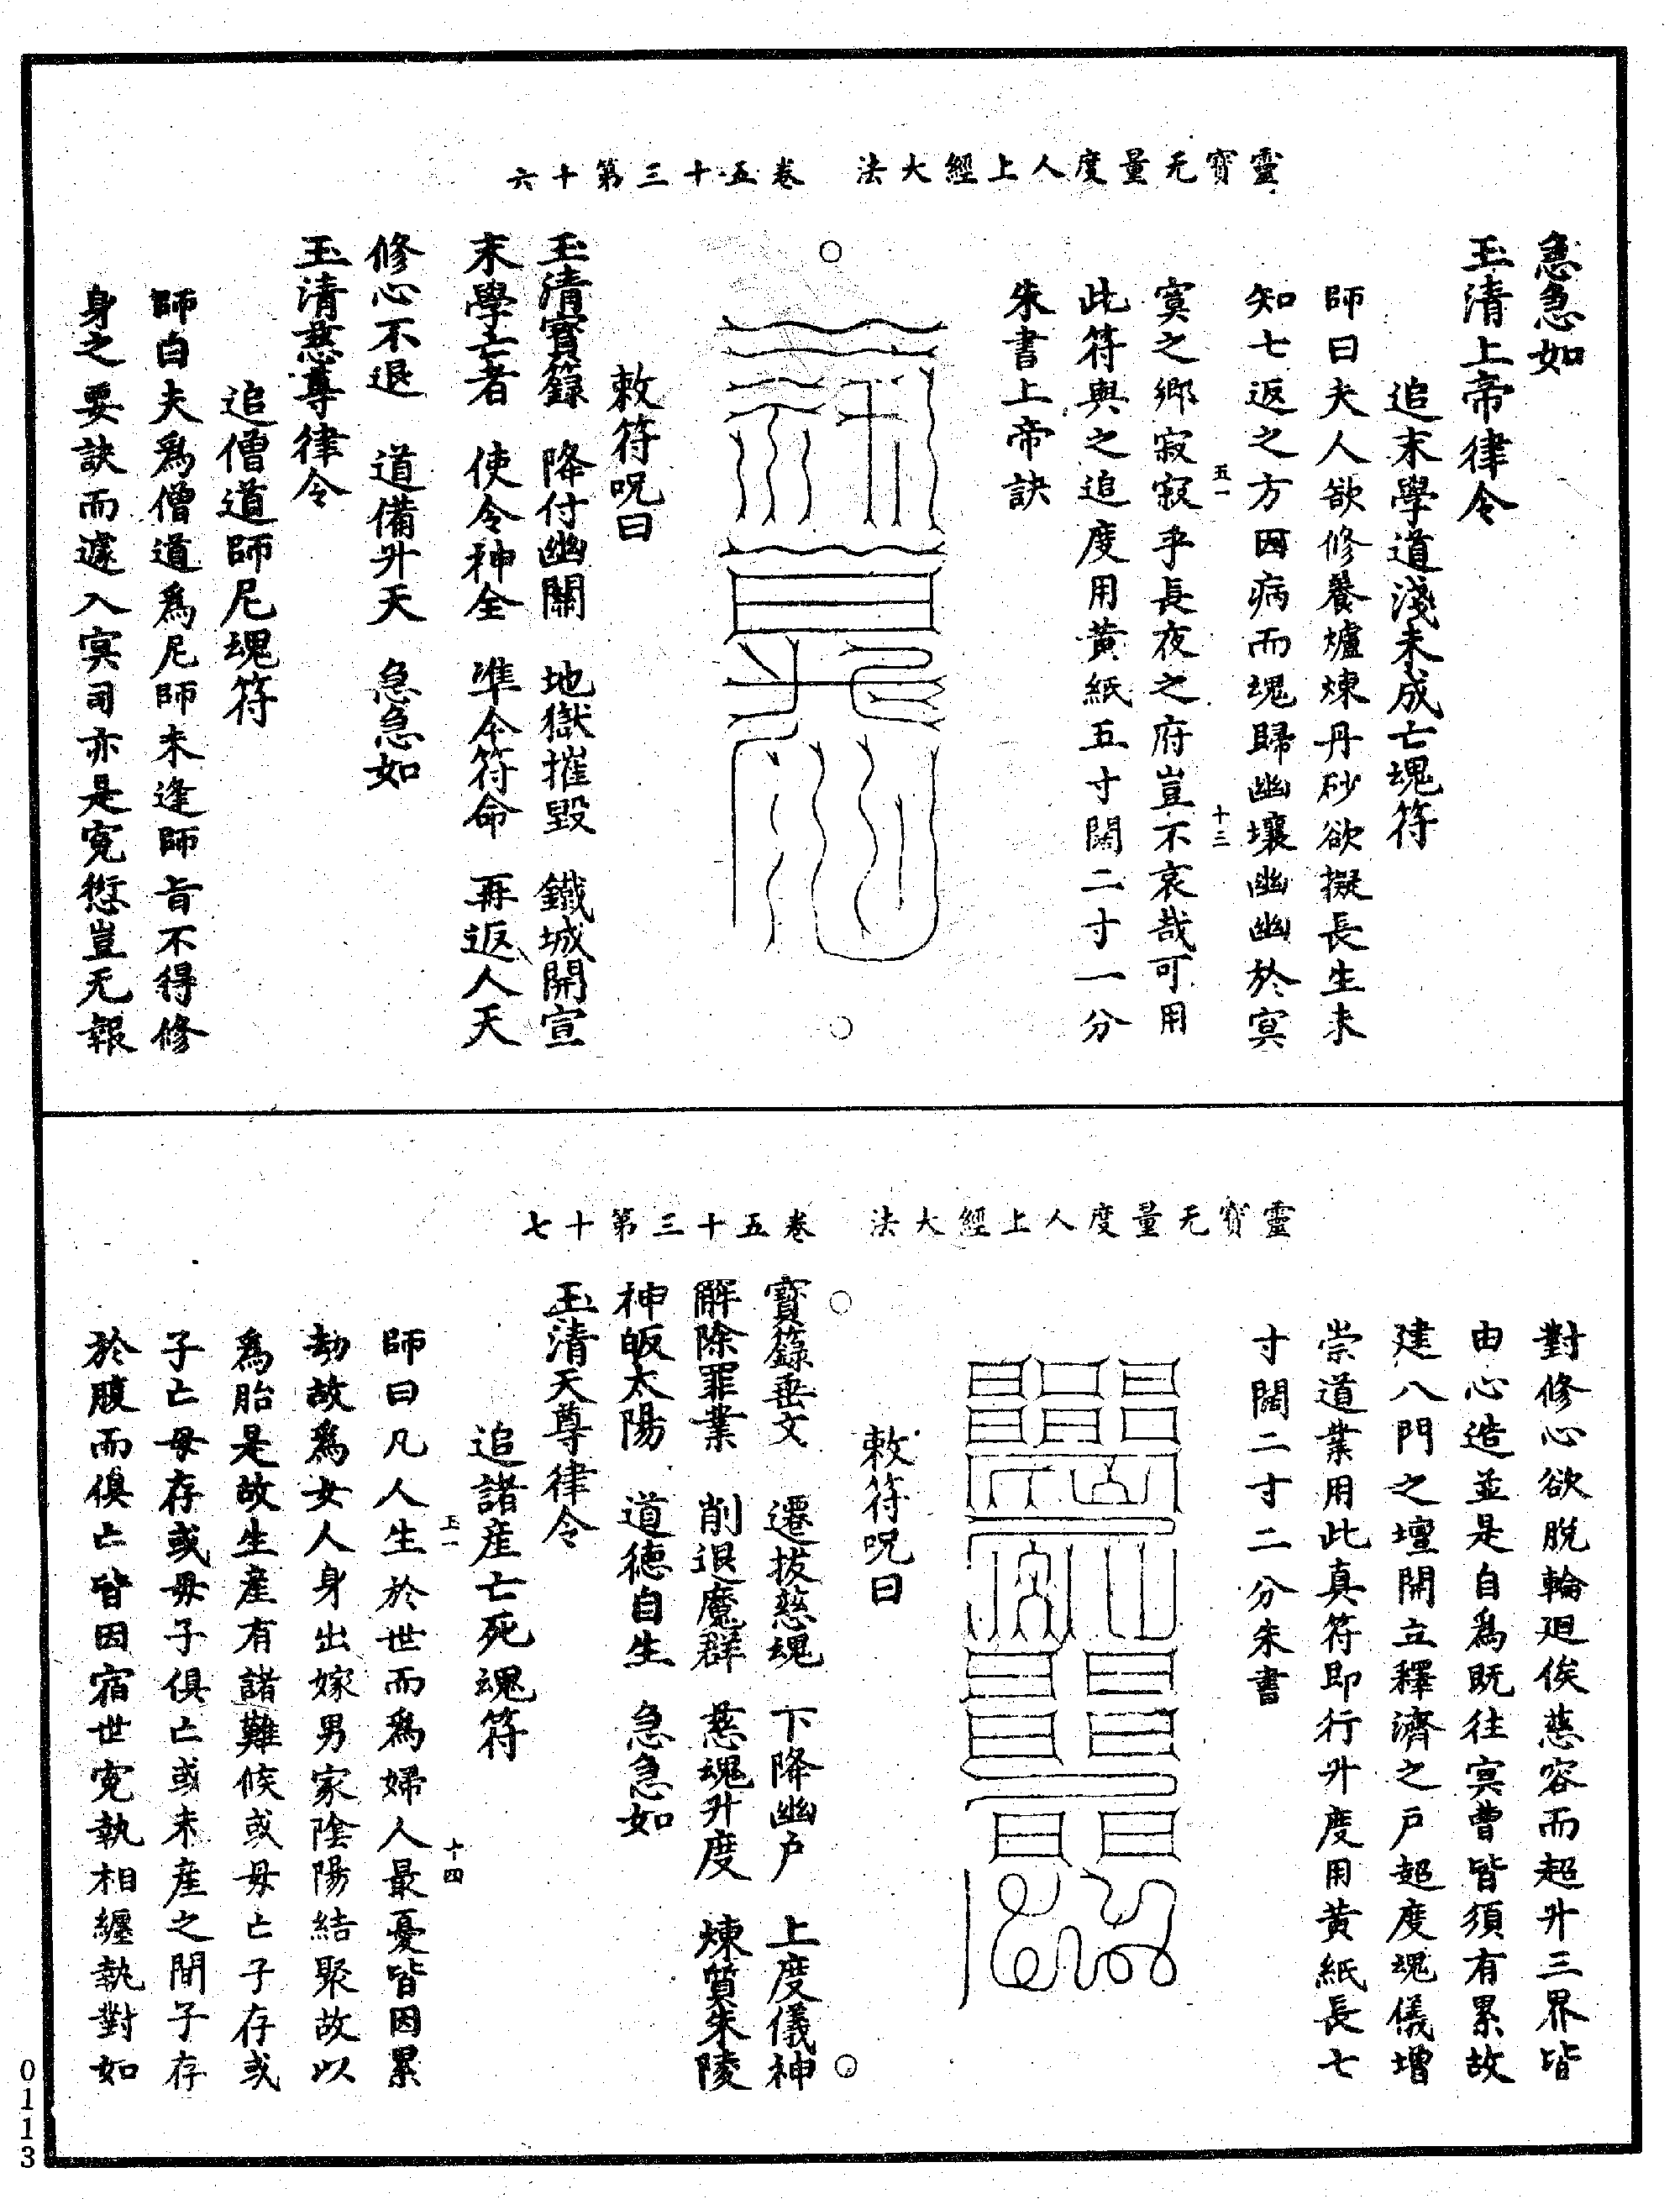 靈寶无量度人上經大法　卷五十三第十六
急急如
玉清上帝律令
追末學道淺未成亡魂符
師曰夫人欲修養爐煉丹砂欲擬長生未
知七返之方因病而魂歸幽壤幽幽於冥
冥之鄉寂寂乎長夜之府豈不哀哉可用
五一　十三
此符與之追度用黃紙五寸闊二寸一分
朱書上帝訣
敕符呪曰
玉清寳籙　降付幽關　地獄摧毀　鐵城開宣
末學亡者　使令神全　準令符命　再返人天
修心不退　道備升天　急急如
玉清慈尊律令
追僧道師尼魂符
師白夫爲僧道爲尼師未逢師旨不得修
身之要訣而遽入冥司亦是寃愆豈无報
靈寶无量度人上經大法　卷五十三第十七
對修心欲脫輪廻俟慈容而超升三界皆
由心造並是自爲既往冥曹皆須有累故
建八門之壇開立釋濟之戶超度魂儀增
崇道業用此真符即行升度用黃紙長七
寸闊二寸二分朱書
敕符呪曰
寳籙垂文　遷拔慈魂　下降幽戶　上度儀神
解除罪業　削退魔群　慈魂升度　煉質朱陵
神皈太陽　道德自生　急急如
玉清天尊律令
追諸産亡死魂符
五一　十四
師曰凡人生於世而爲婦人最憂皆因累
劫故爲女人身出嫁男家陰陽結聚故以
爲胎是故生産有諸難候或母亡子存或
子亡母存或母子俱亡或未産之間子存
於腹而俱亡皆因宿世寃執相纏執對如
0113